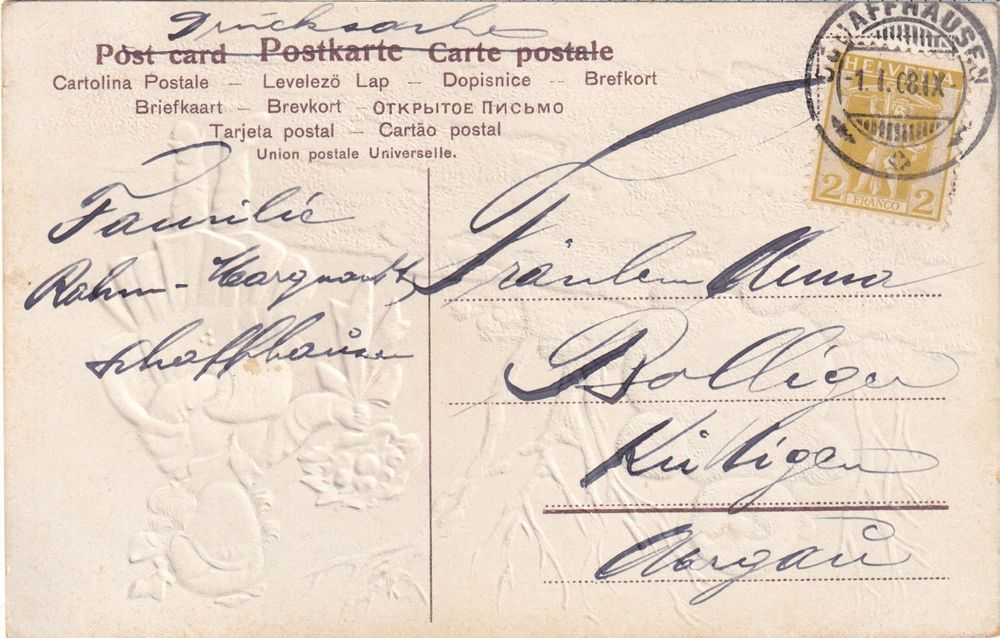 Drucksache
Post card Postkarte Carte postale
Cartolina Postale – Levelező Lap – Dopisnice – Brefkort
Briefkaart – Brevkort – ОТКРЫТОЕ ПИСЬМО
Tarjeta postal – Cartão postal
Union postale Universelle.
SCHAFFHAUSEN
-1.I.08.IX
HELVETIA
2 FRANCO 2
Familie
Rahm-
Schaffhausen
Fräulein Anna
Bolliger
Küttigen
Aargau